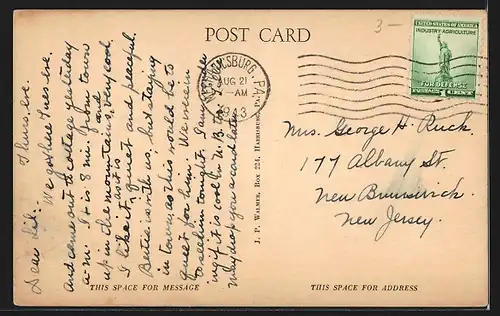 POST CARD
3-
AUG 21
-AM
1943
PA.
UNITED STATES OF AMERICA
INDUSTRY AGRICULTURE
FOR DEFENSE
1 CENT
Thurs. eve.
Dear Lil:
We got here Tues. eve.
and came out to cottage yesterday
a.m. It is 8 mi. from town
up in the mountains, very cool.
I like it, quiet and peaceful.
as it is
Bertie is with us, but staying
in town as this would be to
quiet for him. We were in
to see him tonight. Am wonder
ing if it is cool in N.B. to.
May drop you a card later.
J. P. WALMER, BOX 224, HARRISBURG, PA.
Mrs. George H. Ruck.
177 Albany St.
New Brunswick.
New Jersey.
THIS SPACE FOR MESSAGE
THIS SPACE FOR ADDRESS